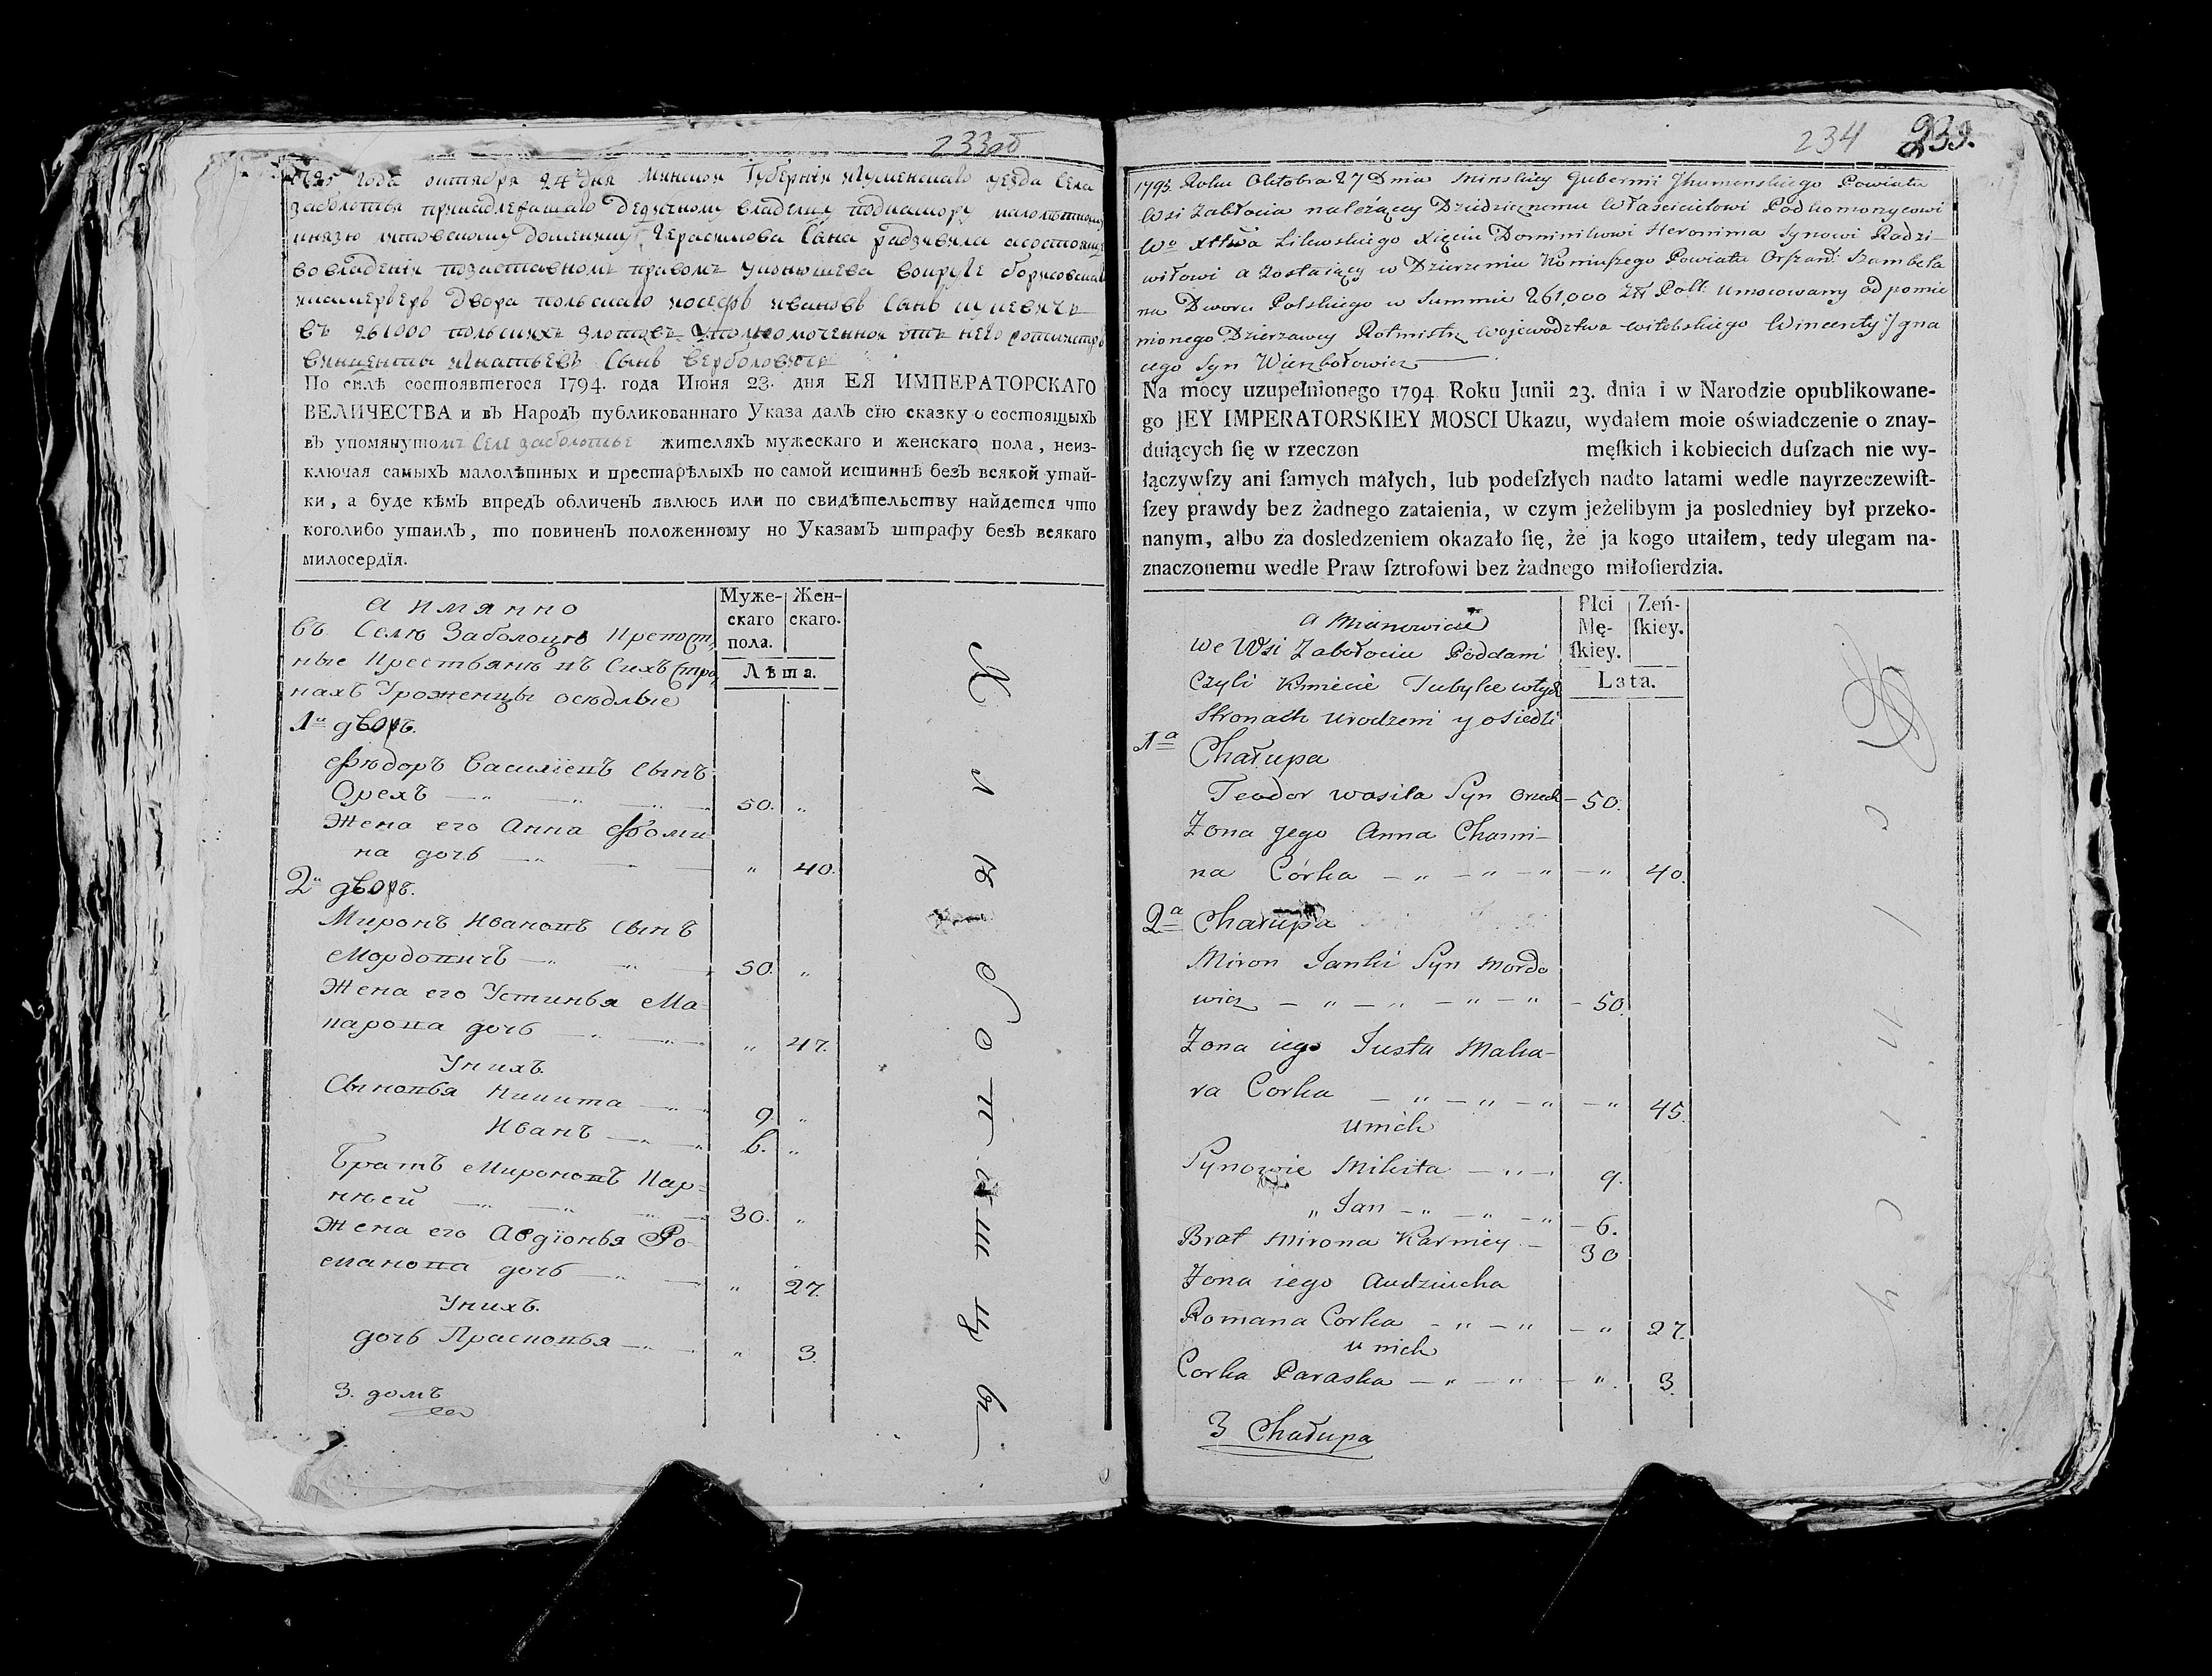 233об
1795 года октября 24 дня Минской Губерніи Игуменскаго уезда Села
заболотья принадлежащаго Дедичному владелцу подкамору малолетному
князю литовскому доминику Герасимова Сына радзивила а состоящаго
во владеніи позаставномъ правомъ
камергеръ Двора польскаго иосефъ ивановъ Сынъ
въ 261000 польскихъ злотыхъ Уполномоченной отъ него ротмистръ
винценты игнатьевъ Сынъ верболовичъ
По силѣ состоявшегося 1794. года Июня 23. дня ЕЯ ИМПЕРАТОРСКАГО
ВЕЛИЧЕСТВА и въ Народъ публикованнаго Указа далъ сїю сказку о состоящыхъ
въ упомянутомъ Селе заболотье жителяхъ мужескаго и женскаго пола, неиз-
ключая самыхъ малолѣтныхъ и престарѣлыхъ по самой истиннѣ безъ всякой утай-
ки, а буде кѣмъ впредъ обличенъ явлюсь или по свидѣтельству найдется что
коголибо утаилъ, то повиненъ положенному но Указамъ штрафу безъ всякаго
милосердїя.
а имянно
Муже-
скаго
пола.
Жен-
скаго.
Лѣта.
въ Селѣ Заболоцю Крепост,
ные Крестьянѣ въ Сихъ Стра,
нахъ Уроженцы осѣдлые
1й дворъ.
Ѳѣдоръ Василіевъ Сынъ
Орехъ — „ — „ — 50. „
Жена его Анна Ѳоми
на дочь — „ — „ 40.
2й дворъ.
Миронъ Ивановъ Сынъ
Мордовичъ — „ — 50. „
Жена его Устинья Ма-
карова дочь — „ — „ 47.
У нихъ.
Сыновья Никита — „ 9. „
Иванъ — „ 6. „
Братъ Мироновъ Кар-
нѣей — „ — „ 30. „
Жена его Авдіонья Ро-
манова дочь — „ — „ 27.
У нихъ.
дочь Прасковья — „ „ 3.
3. домъ
234 239.
1795. Roku Oktobra 27 Dnia Minskiey Gubernii Jhumenskiego Powiatu
Wsi Zabłocia należący Dziedzicznemu Właścicielowi Podkomorzycowi
Wo Xttwa Litewskiego Xięciu Dominikowi Hieronima Synowi Radzi-
wiłowi a zostaiący w Dzierzeniu Koniuszego Powiatu Orszań: Szambela
na Dworu Polskiego w Summie 261,000 Złł Poll: Umocowany od pomie
nionego Dzierzawcy Rotmistrz Wojewodztwa Witebskiego Wincenty Jgna
cego Syn Wierzbołowicz
Na mocy uzupełnionego 1794 Roku Junii 23. dnia i w Narodzie opublikowane-
go JEY IMPERATORSKIEY MOSCI Ukazu, wydałem moie oświadczenie o znay-
duiących ſię w rzeczon męſkich i kobiecich duſzach nie wy-
łączywſzy ani ſamych małych, lub podeſzłych nadto latami wedle nayrzeczewiſt-
ſzey prawdy bez żadnego zataienia, w czym jeżelibym ja posledniey był przeko-
nanym, albo za dosledzeniem okazało ſię, że ja kogo utaiłem, tedy ulegam na-
znaczonemu wedle Praw ſztrofowi bez żadnego miłoſierdzia.
a Mianowicie
Płci
Mę-
ſkiey.
Żeń-
ſkiey.
Lata.
We Wsi Zabołociu Poddani
Czyli Kmiecie Tubylce w tych
Stronach urodzeni y osiedli
1a Chałupa
Teodor Wasila Syn Orzech – 50.
Zona Jego Anna Chomi-
na Córka – „ – „ – „ – „ 40.
2a Chałupa
Miron Janki Syn Mordo
wicz – „ – „ – „ – „ – 50.
Zona iego Justa Maka-
ra Corka – „ – „ – „ – „ 45.
U nich
Synowie Mikita – „ – 9.
„ Jan – „ – „ – „ – 6.
Brat Mirona Karniey – 30
Zona iego Audziucha
Romana Corka – „ – „ – „ 27.
u nich
Corka Paraska – „ – „ – „ 3.
3 Chałupa